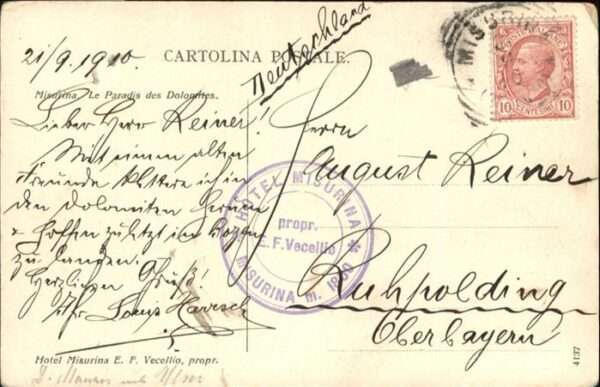 21/9.1910.
CARTOLINA POSTALE.
Deutschland
MISURINA
10 CENTESIMI 10
Misurina. Le Paradis des Dolomites.
Lieber Herr Reiner!
Mit einem alten
Freunde klettere ich in
den Dolomiten herum
& hoffen zuletzt in Bozen
zu landen.
Herzlichen Gruß!
Ihr Louis
Herrn
August Reiner
Ruhpolding
Oberbayern
HOTEL MISURINA
propr.
E. F. Vecellio
MISURINA m.
Hotel Misurina E. F. Vecellio, propr.
4137